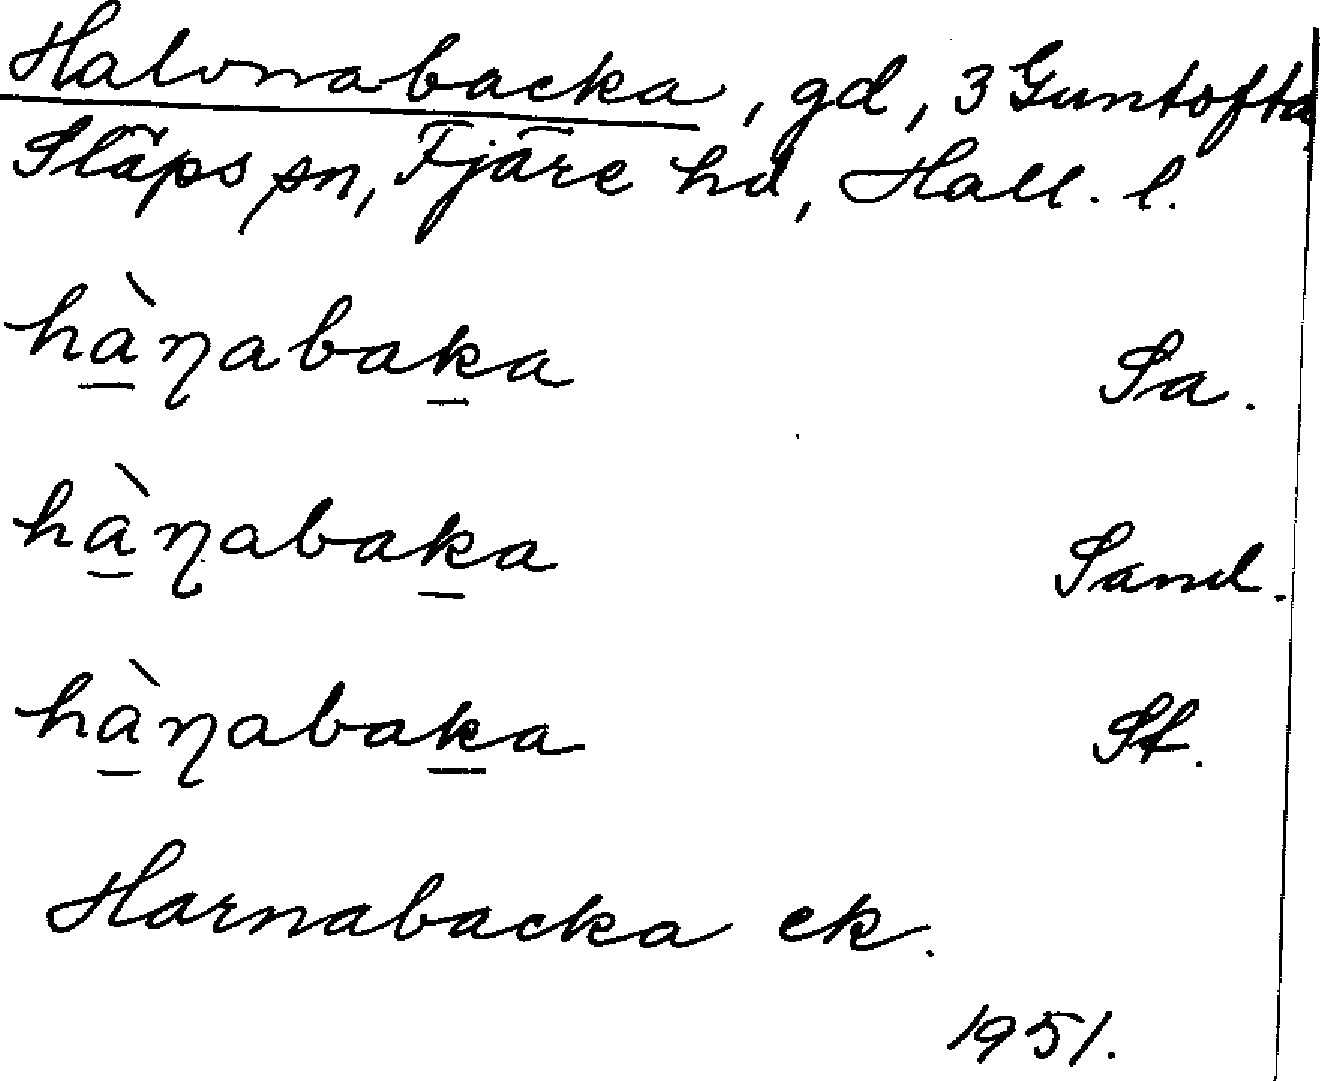 Halvnabacka, gd, 3 Guntofta
Släps sn, Fjäre hd, Hall. l.
hà̱ŋabaḵa Sa.
hà̱ŋabaḵa Sand.
hà̱ŋabaḵa St.
Harnabacka ek.
1951.